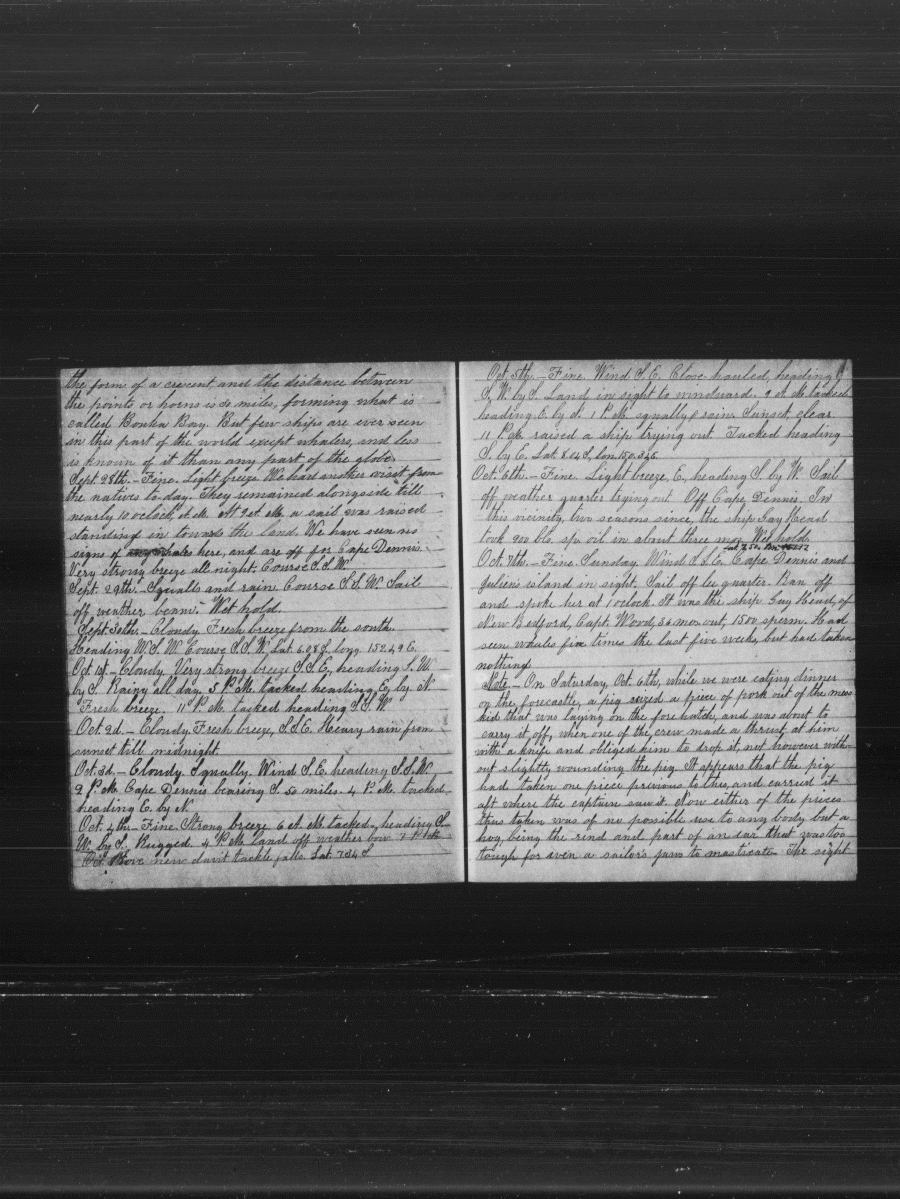 the form of a crescent, and the distance between
the points or horns is miles, forming what is
called Bonka Bay. But few ships are ever seen
in this part of the world except whalers, and less
is known of it than any part of the globe.
Sept. 28th. – Fine. Light breeze. We had another visit from
the natives to-day. They remained alongside till
nearly 10 o'clock, A.M. At 9 A.M. a sail was raised
standing in towards the land. We have seen no
signs of whales here, and are off for Cape Dennis.
Very strong breeze all night. Course S.S.W.
Sept. 29th. – Squalls and rain. Course S.S.W. Sail
off weather beam. – Wet hold.
Sept. 30th. – Cloudy. Fresh breeze from the south.
Heading W.S.W. Course S.S.W. Lat. 6.08 S, long. 152.49 E.
Oct. 1st. – Cloudy. Very strong breeze S.S.E., heading S.W.
by S. Rainy all day. 5 P.M. tacked heading E. by N.
Fresh breeze. 11 P.M. tacked heading S.S.W.
Oct. 2d. – Cloudy. Fresh breeze, S.S.E. Heavy rain from
sunset till midnight.
Oct. 3d. – Cloudy. Squally. Wind S.E. heading S.S.W.
2 P.M. Cape Dennis bearing S. 50 miles. 4 P.M. tacked
heading E. by N.
Oct. 4th – Fine. Strong breeze. 6 A.M. tacked, heading S.
W. by S. Rugged. 4 P.M. land off weather bow. 7 P.M.
Rove new davit tackle falls. Lat. 7.34 S.
Oct. 5th. – Fine. Wind S.E. Close-hauled, heading
S.W. by S. Land in sight to windward. 9 A.M. tacked
heading E. by N. 1 P.M. squally & rain. Sunset, clear.
11 P.M. raised a ship trying out. Tacked heading
S. by E. Lat. 8.04 S, lon. 150.34 E.
Oct. 6th. – Fine. Light breeze, E, heading S. by W. Sail
off weather quarter trying out. Off Cape Dennis. In
this vicinity, two seasons since, the ship Gay Head
took 900 bls. sp. oil in about three mos. Wet hold.
Lat. 7.50
Oct. 7th. – Fine. Sunday. Wind S.S.E. Cape Dennis and
Julien island in sight. Sail off lee quarter. Ran off
and spoke her at 1 o'clock. It was the ship Gay Head, of
New Bedford, Capt. Wood, 36 mos. out, 1500 sperm. Had
seen whales five times the last five weeks, but had taken
nothing.
Note. – On Saturday, Oct. 6th, while we were eating dinner
on the forecastle, a pig seized a piece of pork out of the mess
kid that was laying on the fore hatch, and was about to
carry it off, when one of the crew made a thrust at him
with a knife and obliged him to drop it, not however with-
out slightly wounding the pig. It appears that the pig
had taken one piece previous to this, and carried it
aft where the captain saw it. Now either of the pieces
thus taken was of no possible use to any body but a
hog being the rind and part of an ear that was too
tough for even a sailor's jaws to masticate. The sight